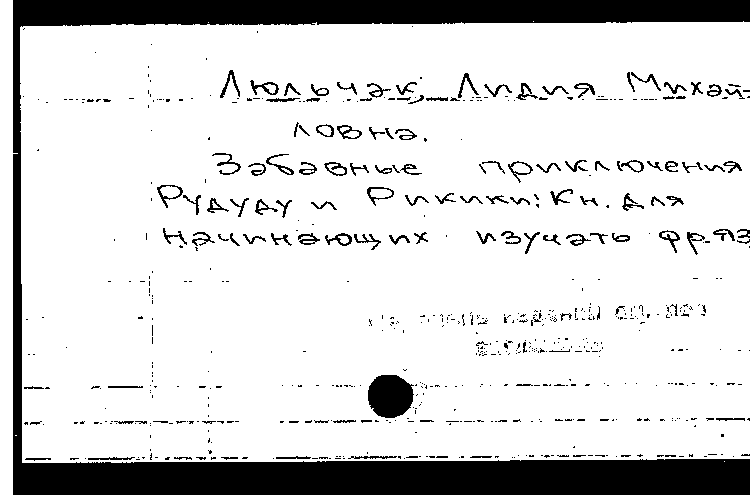 Люльчак, Лидия Михай-
ловна.
Забавные приключения
Рудуду и Рикики: Кн. для
начинающих изучать фр. яз
изданий см. под